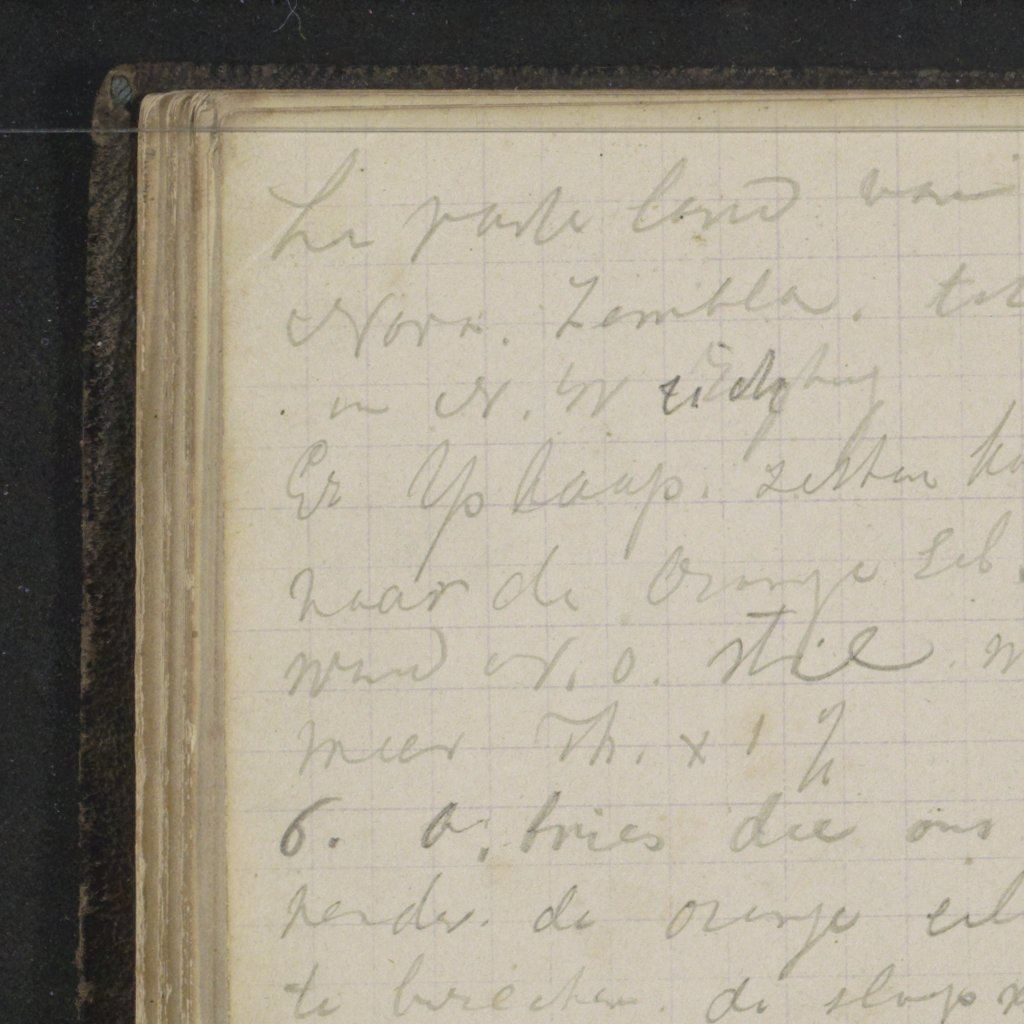 vaste land van
Nova. Zembla. tot
in N. W zicht
Er Ys kaap. zetten
naar de Oranje Eil.
wind N. O. stil
meer Th. x 1
6. O. bries die ons
verder. de oranje eil
te bereiken. de sloep